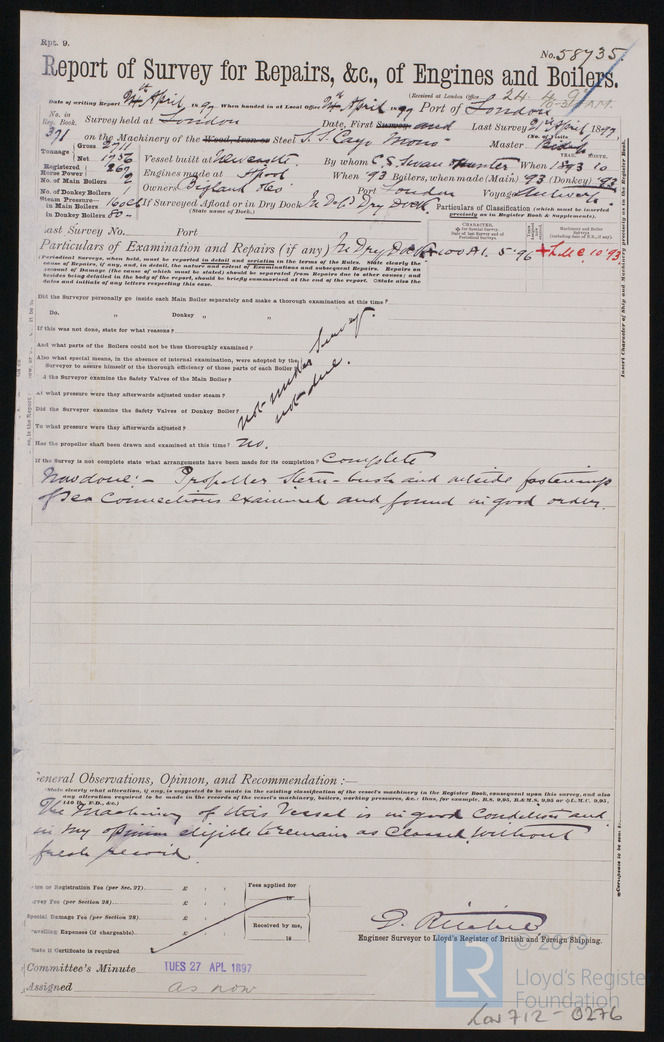 Rpt. 9.
No. 58735.
Report of Survey for Repairs, &c., of Engines and Boilers.
(Received at London Office 24.4.97
Date of writing Report 24th April 1897. When handed in at Local Office 24th April 1897 Port of London
No. in Reg. Book. 371 Survey held at London Date, First Survey and Last Survey 21st April 1897
(No. of Visits
on the Machinery of the Wood, Iron or Steel S.S. Cayo Mono Master
Tonnage Gross 2711
Net 1756
Vessel built at Newcastle By whom C. S. Swan & Hunter When 1893 10
Registered Horse Power 269
Engines made at When '93 Boilers, when made (Main) 93 (Donkey) 93
No. of Main Boilers 2
No. of Donkey Boilers
Owners Port London Voyage
Steam Pressure—
in Main Boilers 160 lb
in Donkey Boilers 80
If Surveyed Afloat or in Dry Dock In Dry Dock.
(State name of Dock.)
Particulars of Classification (which must be inserted precisely as in Register Book & Supplements).
Last Survey No. Port
Particulars of Examination and Repairs (if any) In Dry Dock
+100A1. 5.96 +LMC. 10.93
(Periodical Surveys, when held, must be reported in detail and seriatim in the terms of the Rules. State clearly the
cause of Repairs, if any, and, in detail, the nature and extent of Examinations and subsequent Repairs. Repairs on
account of Damage (the cause of which must be stated) should be separated from Repairs due to other causes; and
besides being detailed in the body of the report, should be briefly summarized at the end of the report. State also the
dates and initials of any letters respecting this case.
Insert Character of Ship and Machinery precisely as in the Register Book.
Did the Surveyor personally go inside each Main Boiler separately and make a thorough examination at this time?
Do. " Donkey " "
If this was not done, state for what reasons?
And what parts of the Boilers could not be thus thoroughly examined?
Also what special means, in the absence of internal examination, were adopted by the
Surveyor to assure himself of the thorough efficiency of those parts of each Boiler
not under Survey.
not done.
the Surveyor examine the Safety Valves of the Main Boiler?
at what pressure were they afterwards adjusted under steam?
Did the Surveyor examine the Safety Valves of Donkey Boiler?
To what pressure were they afterwards adjusted?
Has the propeller shaft been drawn and examined at this time? No.
If the Survey is not complete state what arrangements have been made for its completion? Complete
Now done:- Propeller Stern-bush and outside fastenings
of sea connections examined and found in good order.
General Observations, Opinion, and Recommendation:—
State clearly what alteration, if any, is suggested to be made in the existing classification of the vessel's machinery in the Register Book, consequent upon this survey, and also
any alteration required to be made in the records of the vessel's machinery, boilers, working pressures, &c.: thus, for example, B.S. 9,95, B.&M.S. 9,95 or L.M.C. 9,95,
140 lb., F.D., &c.)
The Machinery of this Vessel is in good Condition and
in my opinion eligible to remain as Classed without
fresh record.
or Registration Fee (per Sec. 27) £
Survey Fee (per Section 28) £
Special Damage Fee (per Section 28) £
Travelling Expenses (if chargeable) £
State if Certificate is required
Fees applied for
18
Received by me,
18
D. Ritchie
Engineer Surveyor to Lloyd's Register of British and Foreign Shipping.
Committee's Minute TUES 27 APL 1897
Assigned as now
© 2019
LR
Lloyd's Register
Foundation
Lon 712 - 0276